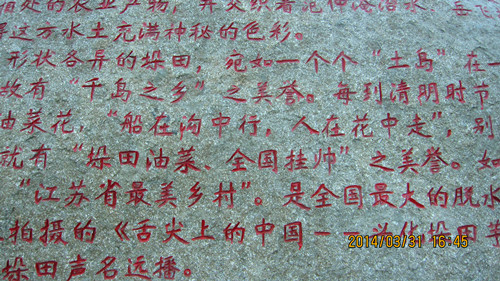 处的农业产物，并交织着范仲淹治水、岳飞
这方水土充满神秘的色彩。
形状各异的垛田，宛如一个个“土岛”在一
故有“千岛之乡”之美誉。每到清明时节
油菜花，“船在沟中行，人在花中走”，别
就有“垛田油菜、全国挂帅”之美誉。如
“江苏省最美乡村”。是全国最大的脱水
拍摄的《舌尖上的中国——兴化垛田
垛田声名远播。
2014/03/31 16:45